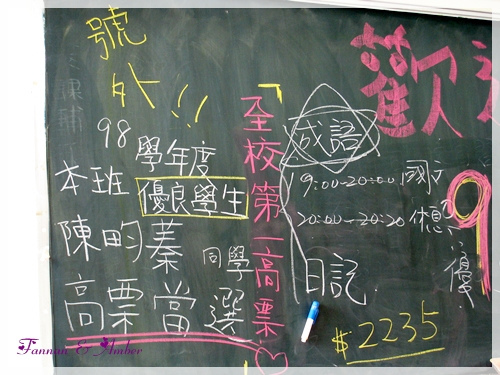 號外!!
98學年度
本班優良學生
陳昀蓁同學
高票當選
全校第一高票
成語
9:00-20:00 國文
20:00-20:20 休息
日記
$2235
歡
優
Fannan & Amber